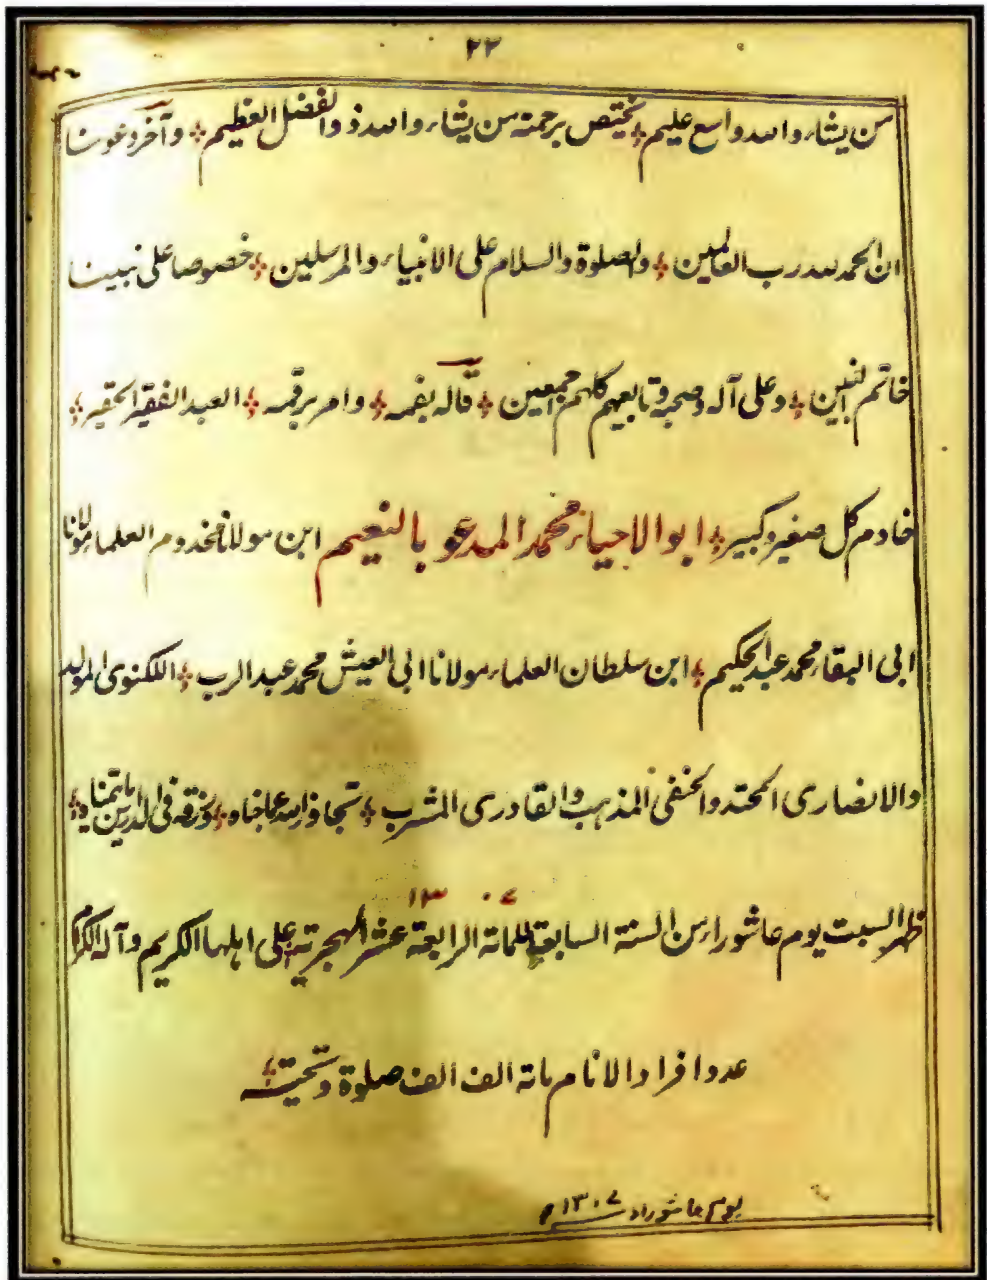 ٢٢
من يشاء والله واسع عليم يختص برحمته من يشاء والله ذو الفضل العظيم وآخر دعوىنا
ان الحمد لله رب العالمين والصلوة والسلام على الانبياء والمرسلين خصوصا على نبينا
خاتم النبيين وعلى آله وصحبه وتابعيهم كلهم اجمعين قاله بفمه وامر برقمه العبد الفقير الحقير
خادم كل صغير وكبير ابو الاحياء محمد المدعو بالنعيم ابن مولانا مخدوم العلماء مولانا
ابى البقاء محمد عبد الحكيم ابن سلطان العلماء مولانا ابى العيش محمد عبد الرب اللكنوى المولد
والانصارى المحتد والحنفى المذهب والقادرى المشرب تجاوز الله عما جناه ورزقه فى الدارين ما يتمناه
١٣٠٧
ظهر السبت يوم عاشوراء من السنة السابعة للمائة الرابعة عشر الهجرية على اهلها الكريم وآله الكرام
عدد افراد الانام مائة الف الف صلوة وتحية
يوم عاشوراء ١٣٠٧ ه